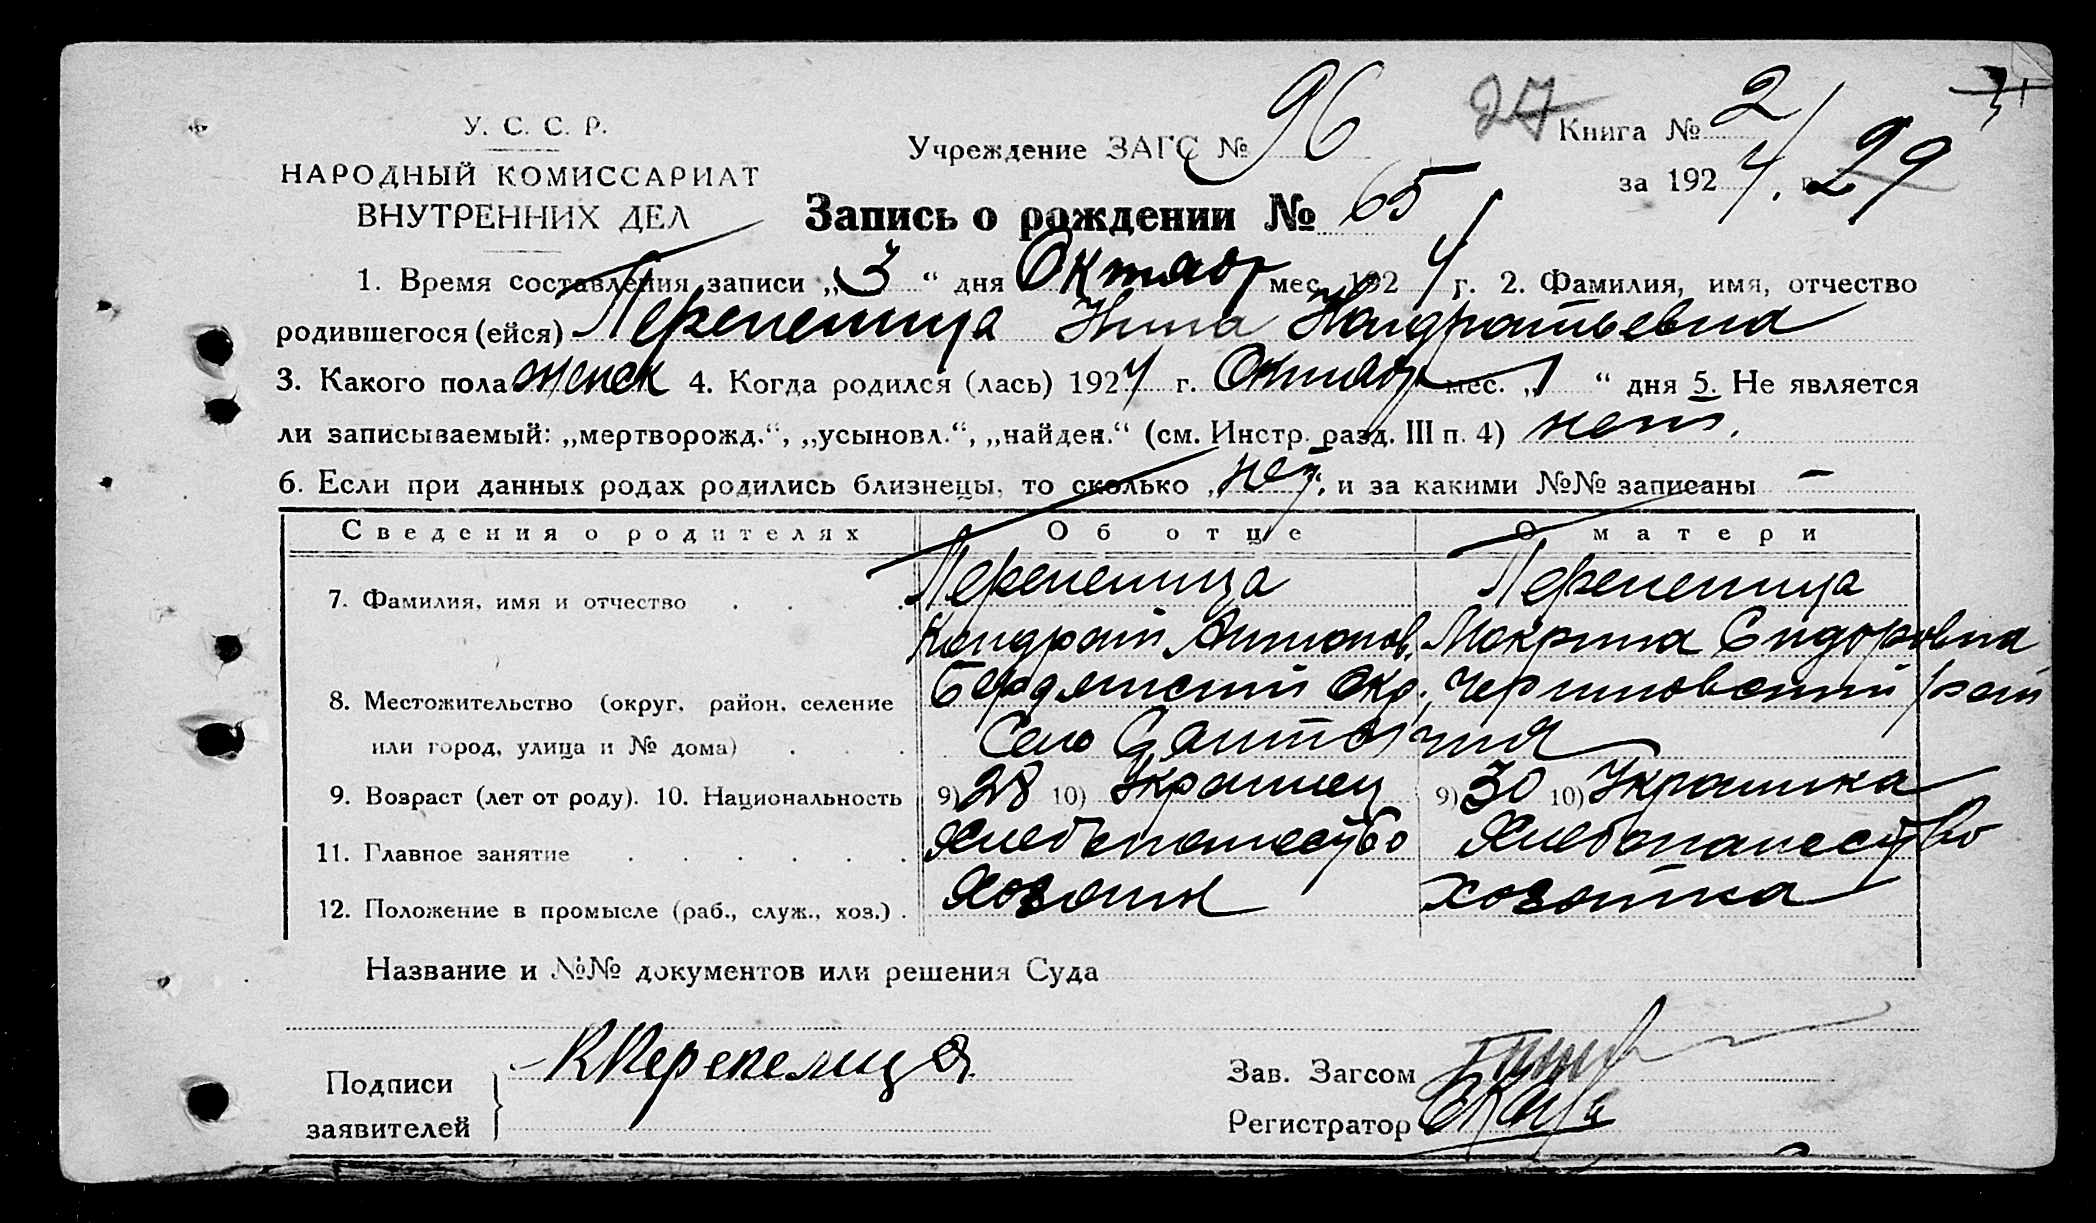 У. С. С. Р.
НАРОДНЫЙ КОМИССАРИАТ
ВНУТРЕННИХ ДЕЛ
Учреждение ЗАГС № 96
27 Книга № 2
за 1924 г. 29
Запись о рождении № 65
1. Время составления записи „3“ дня Октябр мес. 1924 г. 2. Фамилия, имя, отчество
родившегося (ейся) Перепелица Нина Кондратьевна
3. Какого пола женск 4. Когда родился (лась) 1924 г. Октябр мес. „1“ дня 5. Не является
ли записываемый: „мертворожд.“, „усыновл.“, „найден.“ (см. Инстр. разд. III п. 4) нет.
6. Если при данных родах родились близнецы, то сколько нет, и за какими №№ записаны —
Сведения о родителях Об отце О матери
7. Фамилия, имя и отчество Перепелица Перепелица
Кондрат Антонов. Макрина Сидоровна
8. Местожительство (округ, район, селение Бердянский окр, Черниговский рай
или город, улица и № дома) Село
9. Возраст (лет от роду). 10. Национальность 9) 28 10) Украинец 9) 30 10) Украинка
11. Главное занятие Хлебопашество Хлебопашество
12. Положение в промысле (раб., служ., хоз.) Хозяин хозяйка
Название и №№ документов или решения Суда
Подписи
заявителей
К Перепелица
Зав. Загсом
Регистратор